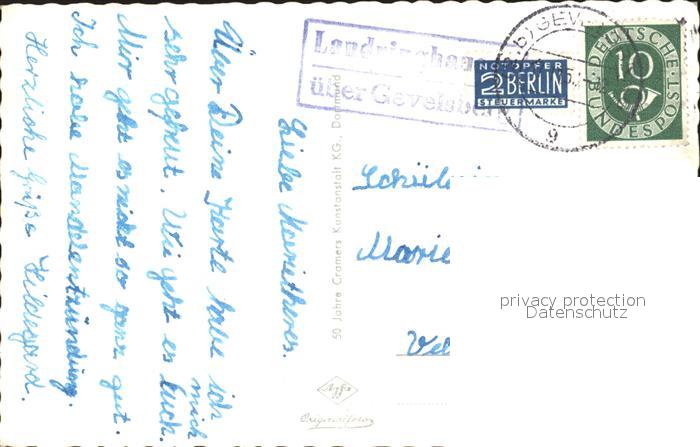 Liebe Marietheres.
Über Deine Karte habe ich
mich
sehr gefreut. Wie geht es Euch.
Mir geht es nicht so ganz gut.
Ich habe Mandelentzündung.
Herzliche Grüße Hildegard.
Landringhausen
über Gevelsberg
NOTOPFER
2 BERLIN
STEUERMARKE
GEV
9
DEUTSCHE
BUNDESPOST
10
Marie
50 Jahre Cramers Kunstanstalt KG., Dortmund
Agfa
Originalfoto
privacy protection
Datenschutz